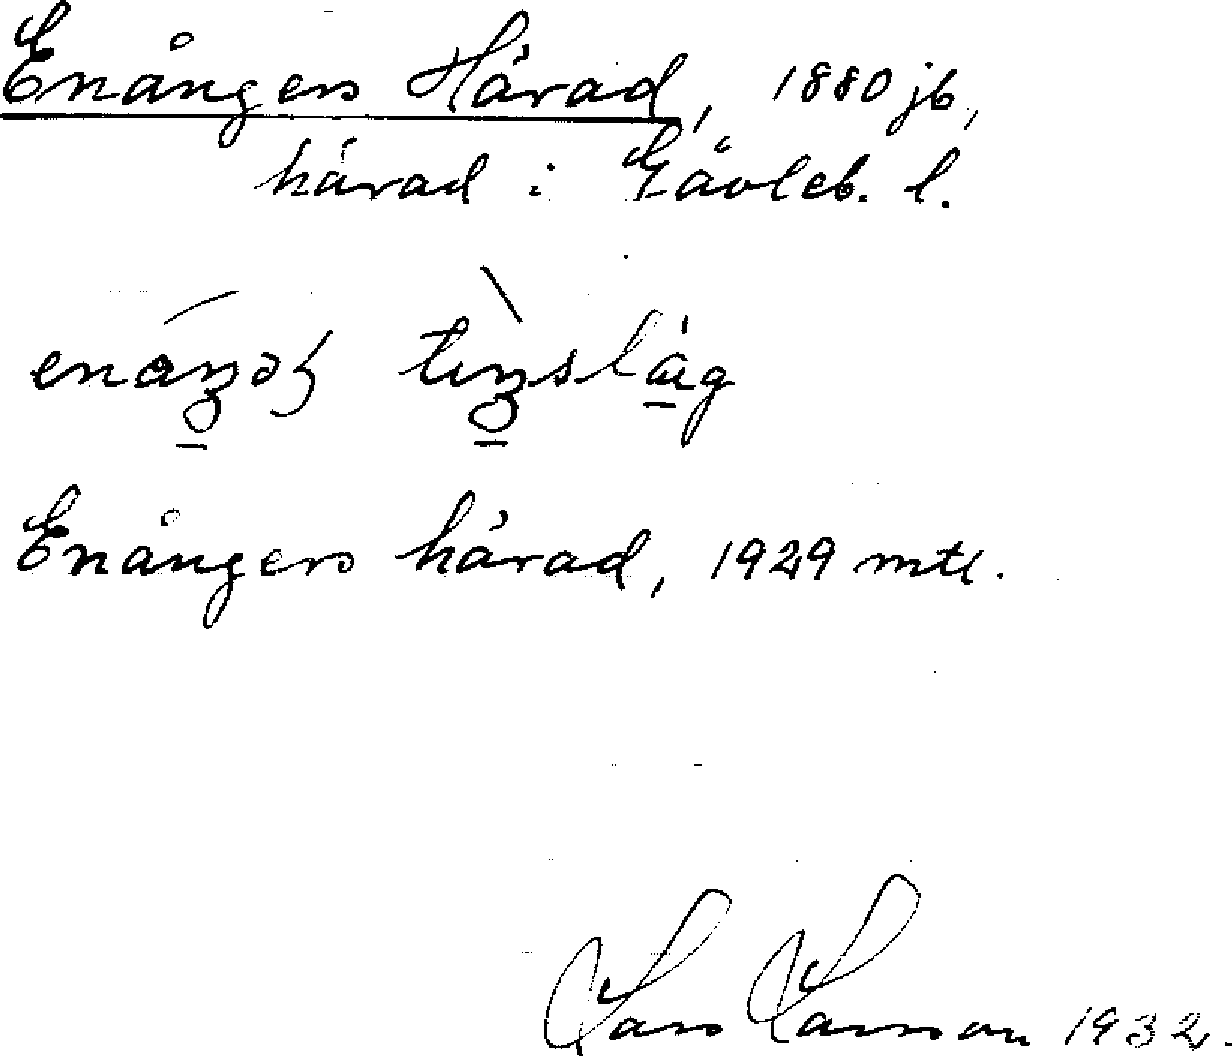 Enångers Härad, 1880 jb,
härad i Gävleb. l.
Enångers härad, 1929 mtl.
Lars Larsson 1932.